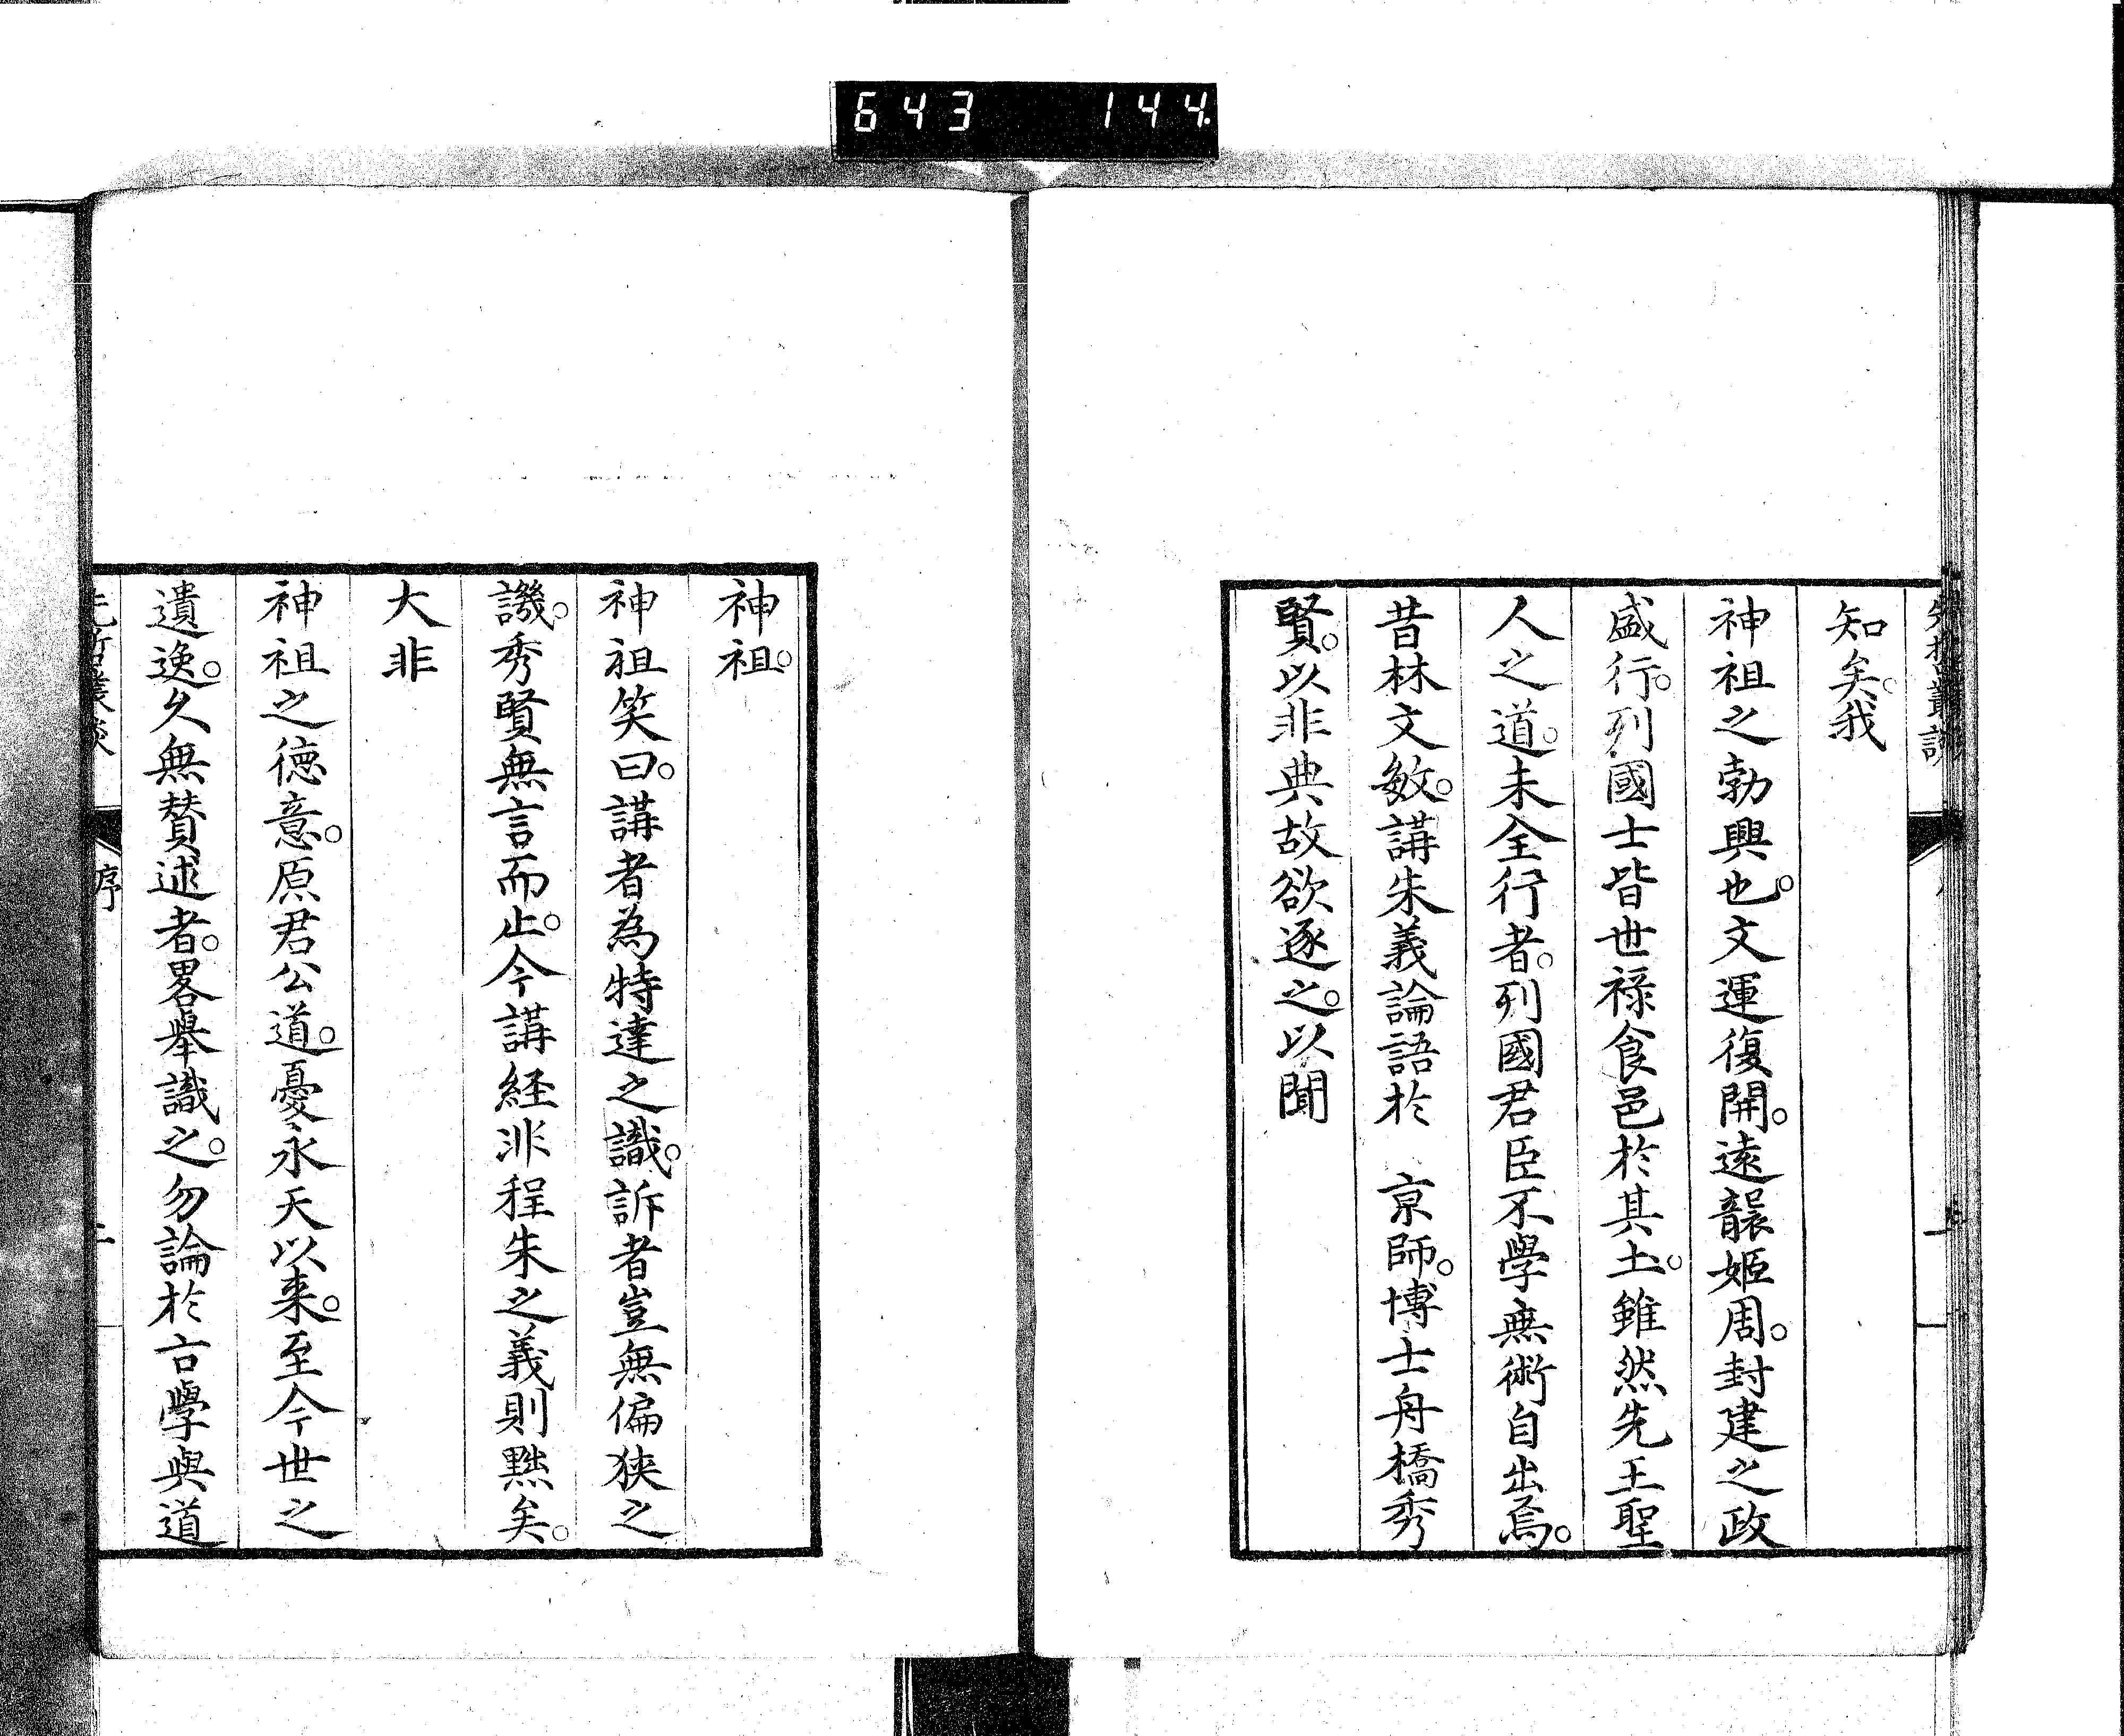 643 144.
先哲叢談
知矣。我
神祖之勃興也。文運復開。遠襲姬周。封建之政
盛行。列國士皆世祿食邑於其土。雖然先王聖
人之道。未全行者。列國君臣不學無術自出焉。
昔林文敏。講朱義論語於 京師。博士舟橋秀
賢。以非典故欲逐之。以聞
神祖。
神祖笑曰。講者為特達之識。訴者豈無偏狹之
譏。秀賢無言而止。今講経非程朱之義則黙矣。
大非
神祖之德意。原君公道。憂永天以来。至今世之
遺逸。久無賛述者。畧舉識之。勿論於古學與道
先哲叢談
序
二